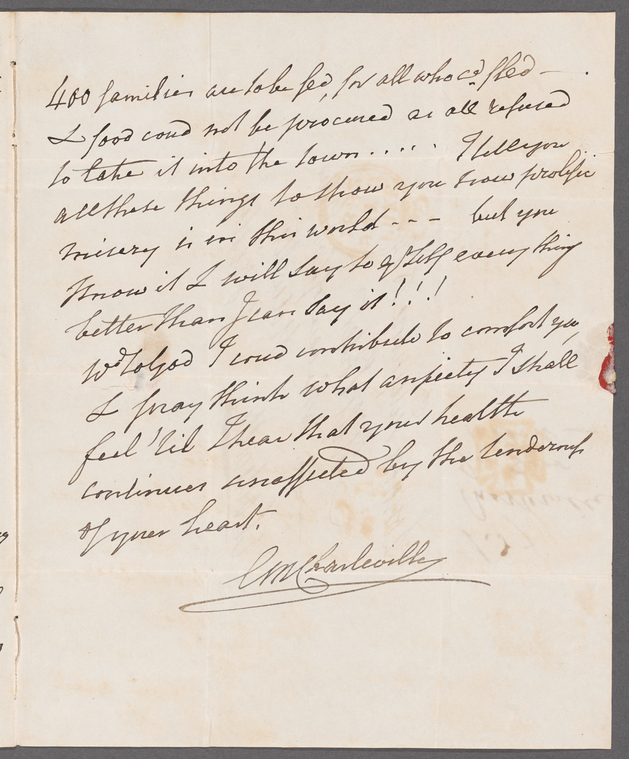 400 families are to be fed, for all who cd fled –
& food coud not be procured as all refused
to take it into the town..... I tell you
all these things to show you how prolific
misery is in this world - - - but you
know it & will say to yrself every thing
better than I can say it!!!
Wd to God I coud contribute to comfort you,
& pray think what anxiety I shall
feel 'til I hear that your health
continues unaffected by the tenderness
of your heart.
CMCharleville